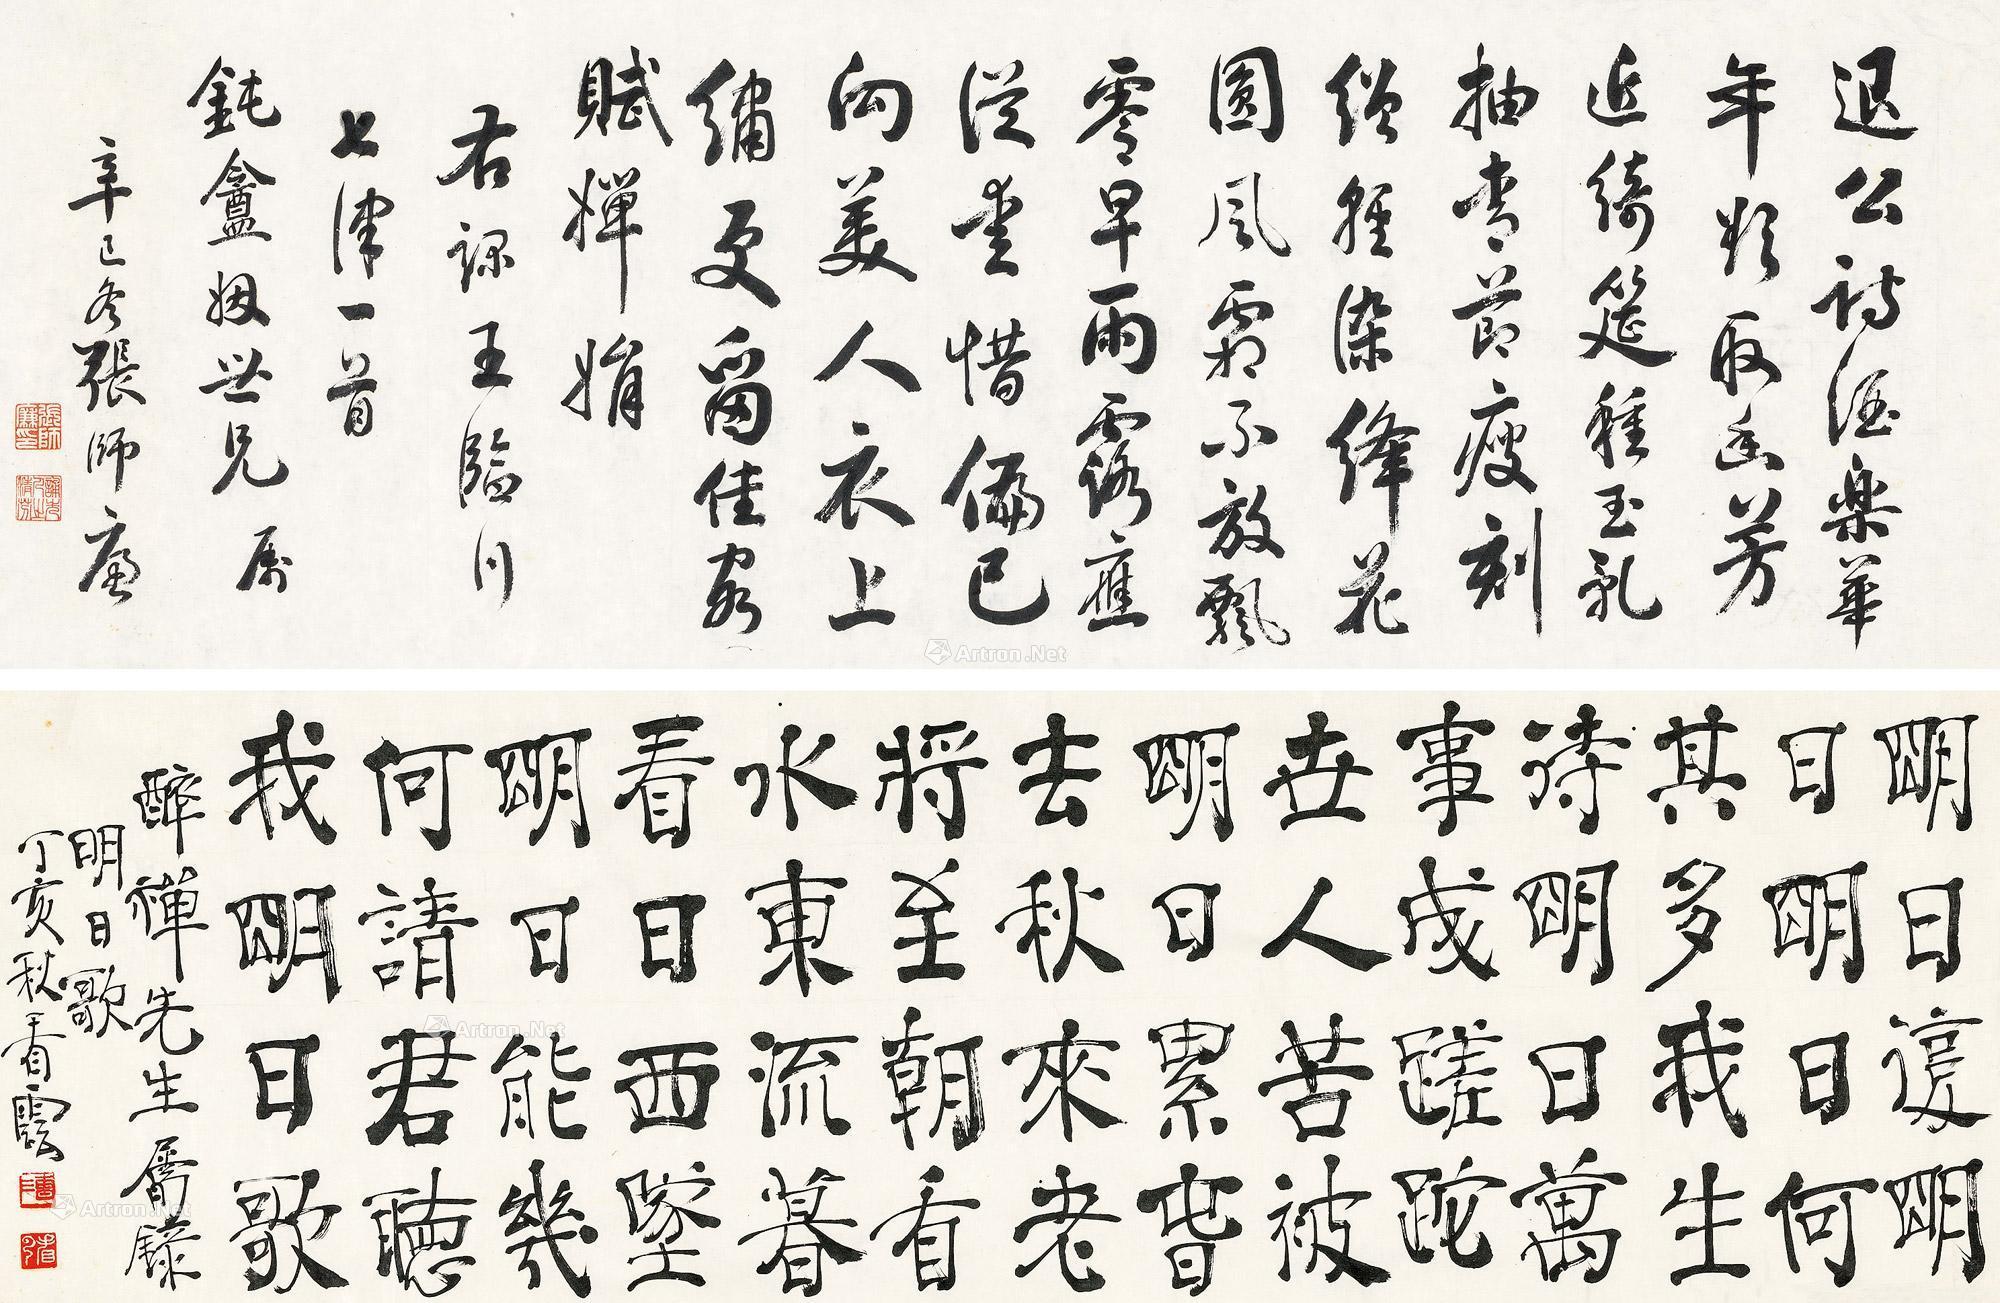 退公詩酒樂華
年欲取幽芳
近綺筵種玉乱
抽青節瘦刻
繒輕染絳花
圓風霜不放飄
零早雨露應
從愛惜偏已
向美人衣上
繡更留佳客
賦嬋娟
右王臨川
七律一首
鈍盦姻世兄屬
辛巳冬張師廉
張師廉印
明日復明
日明日何
其多我生
待明日萬
事成蹉跎
世人苦被
明日累春
去秋來老
將至朝看
水東流暮
看日西墜
明日能幾
何請君聽
我明日歌
醉禪先生屬錄
明日歌
丁亥秋看
Artron.Net
Artron.Net
Artron.Net